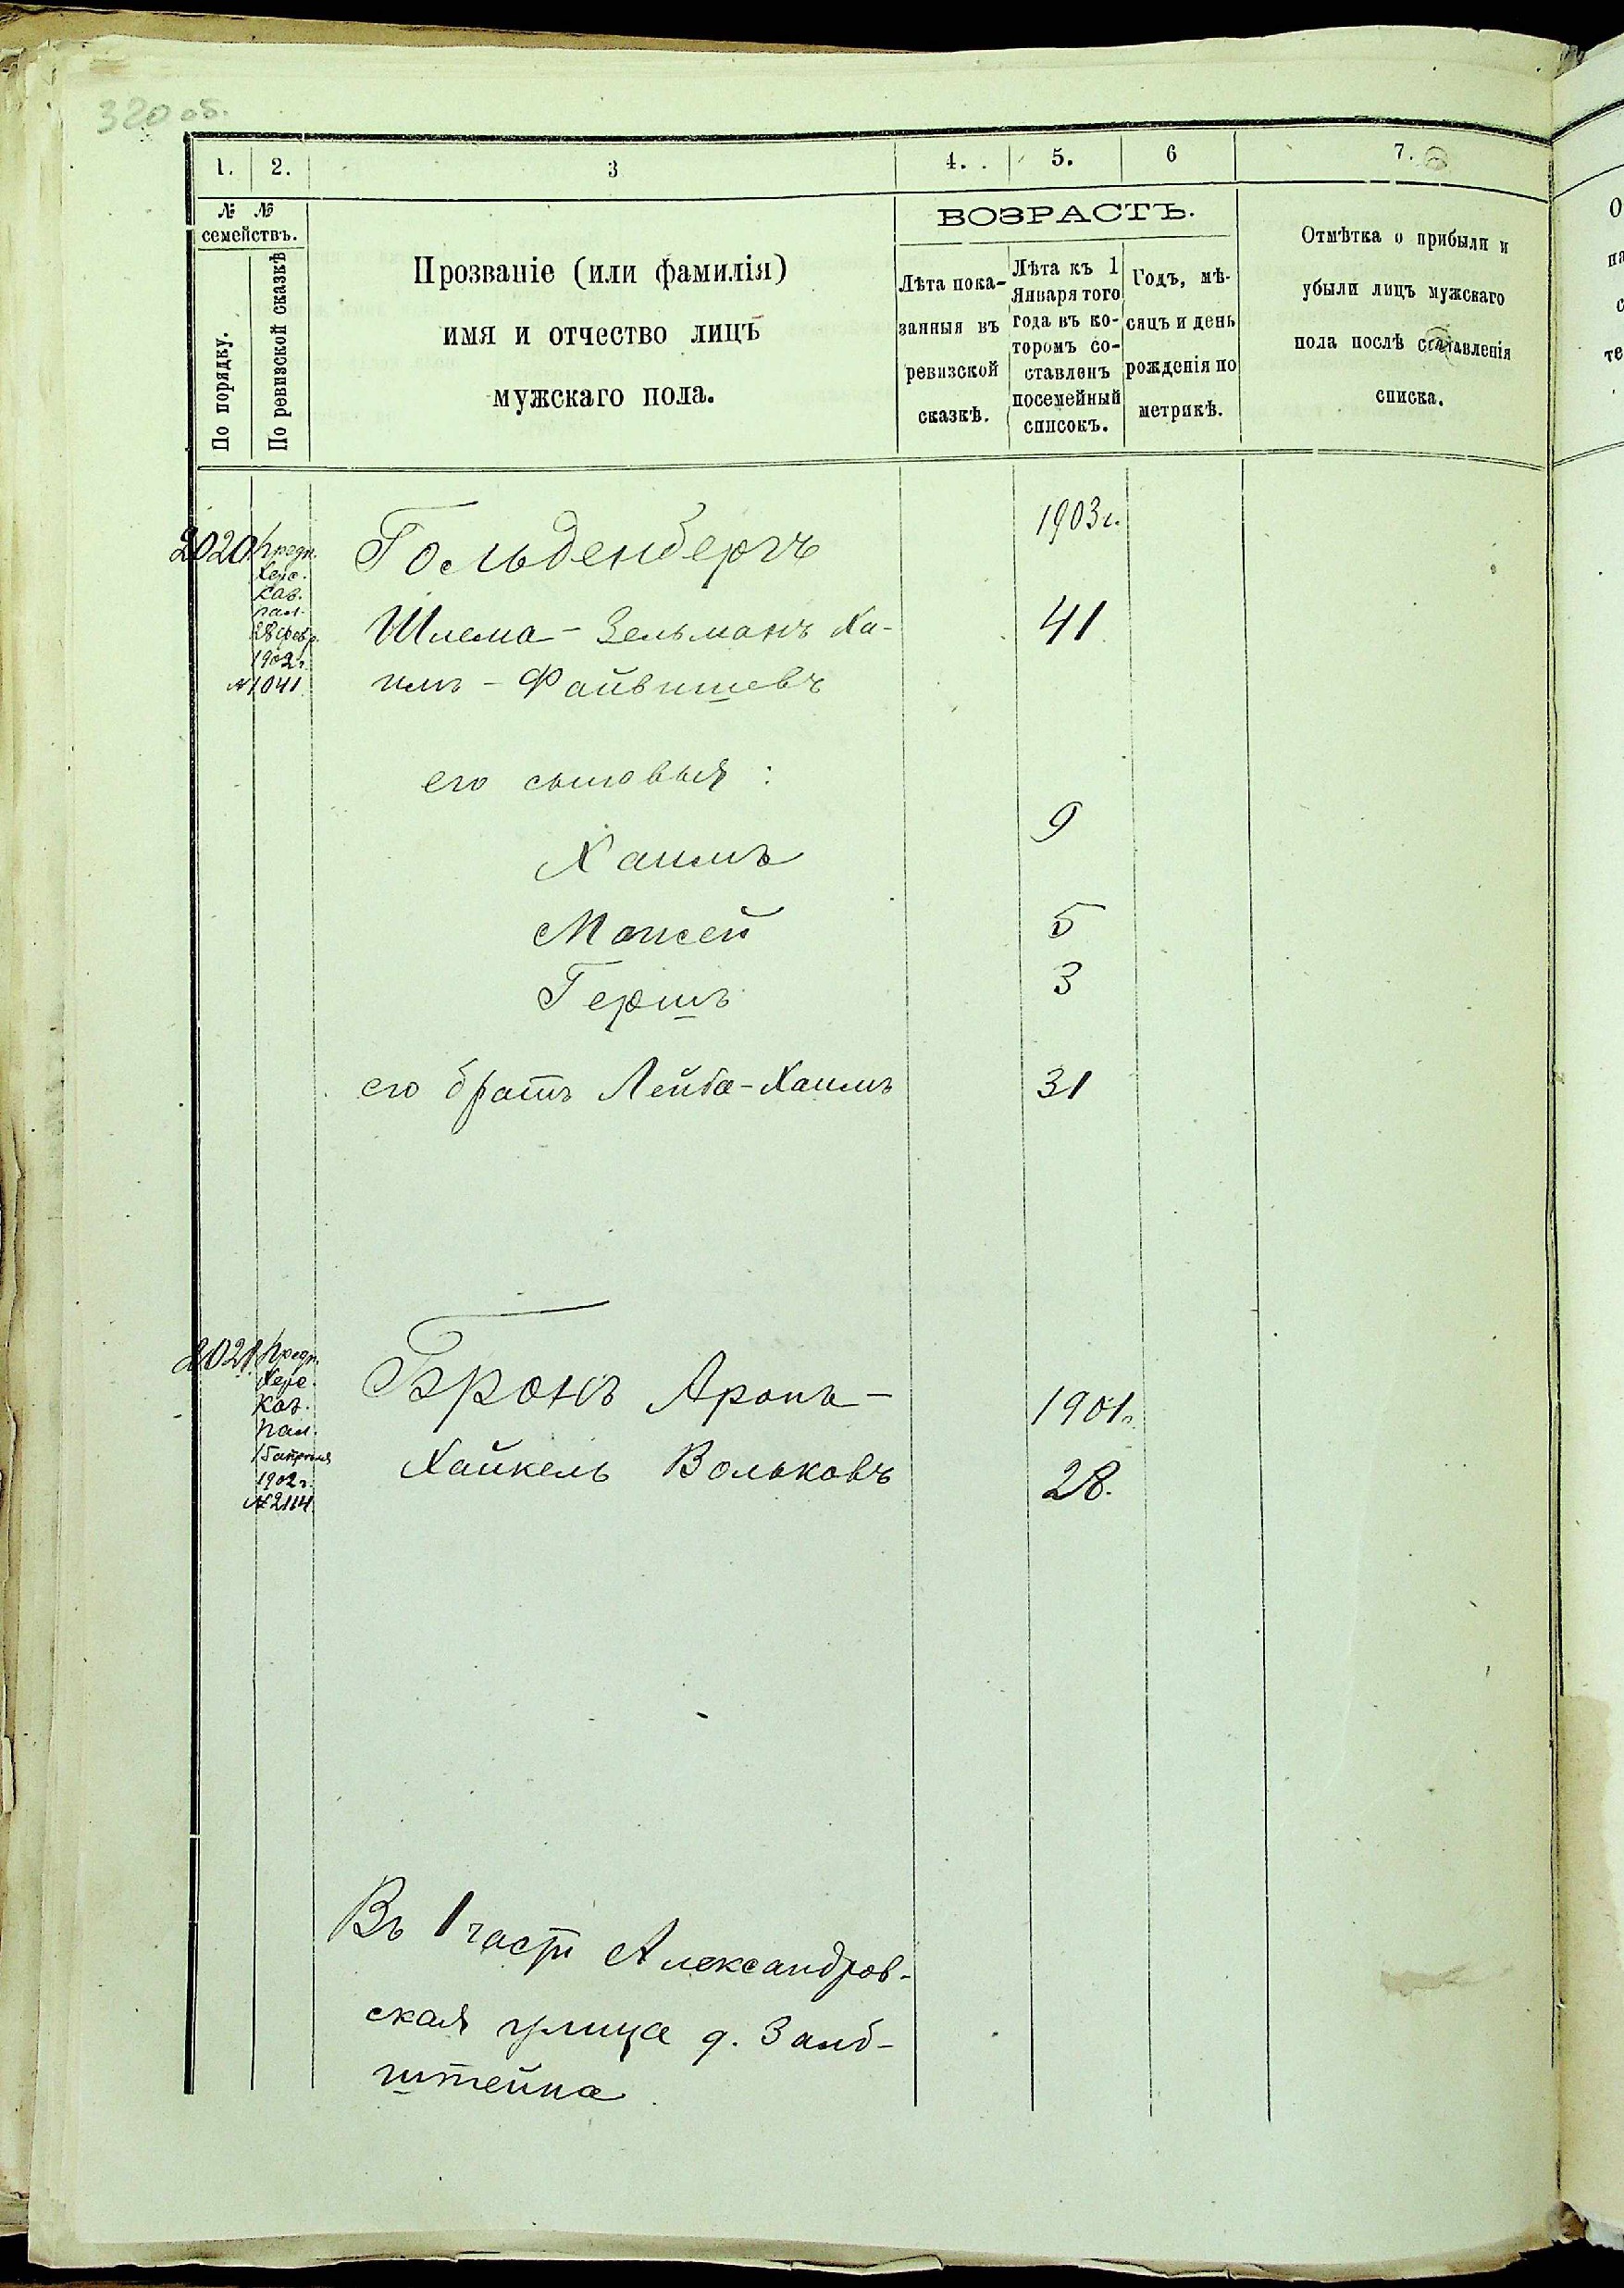 320 об.
1. 2. 3 4. 5. 6 7.
№ №
семействъ.
По порядку.
По ревизской сказкѣ
Прозваніе (или фамилія)
имя и отчество лицъ
мужскаго пола.
ВОЗРАСТЪ.
Лѣта пока-
занныя въ
ревизской
сказкѣ.
Лѣта къ 1
Января того
года въ ко-
торомъ со-
ставленъ
посемейный
списокъ.
Годъ, мѣ-
сяцъ и день
рожденія по
метрикѣ.
Отмѣтка о прибыли и
убыли лицъ мужскаго
пола послѣ составленія
списка.
2020
Предп.
Херс.
Каз.
пал.
28 февр.
1902 г.
№ 1041
Гольденбергъ
1903 г.
Шлема - Зельманъ Ха- 41
имъ - Файвишевъ
его сыновья :
Хаимъ 9
Моисей 5
Гершъ 3
его братъ Лейба - Хаимъ 31
2021
Предп.
Херс.
Каз.
Пал.
15 апрѣля
1902 г.
№ 2114
Бронъ Аронъ - 1901 г.
Хайкель Вольковъ 28.
Въ 1 части Александров-
ская улица д. Занд-
штейна